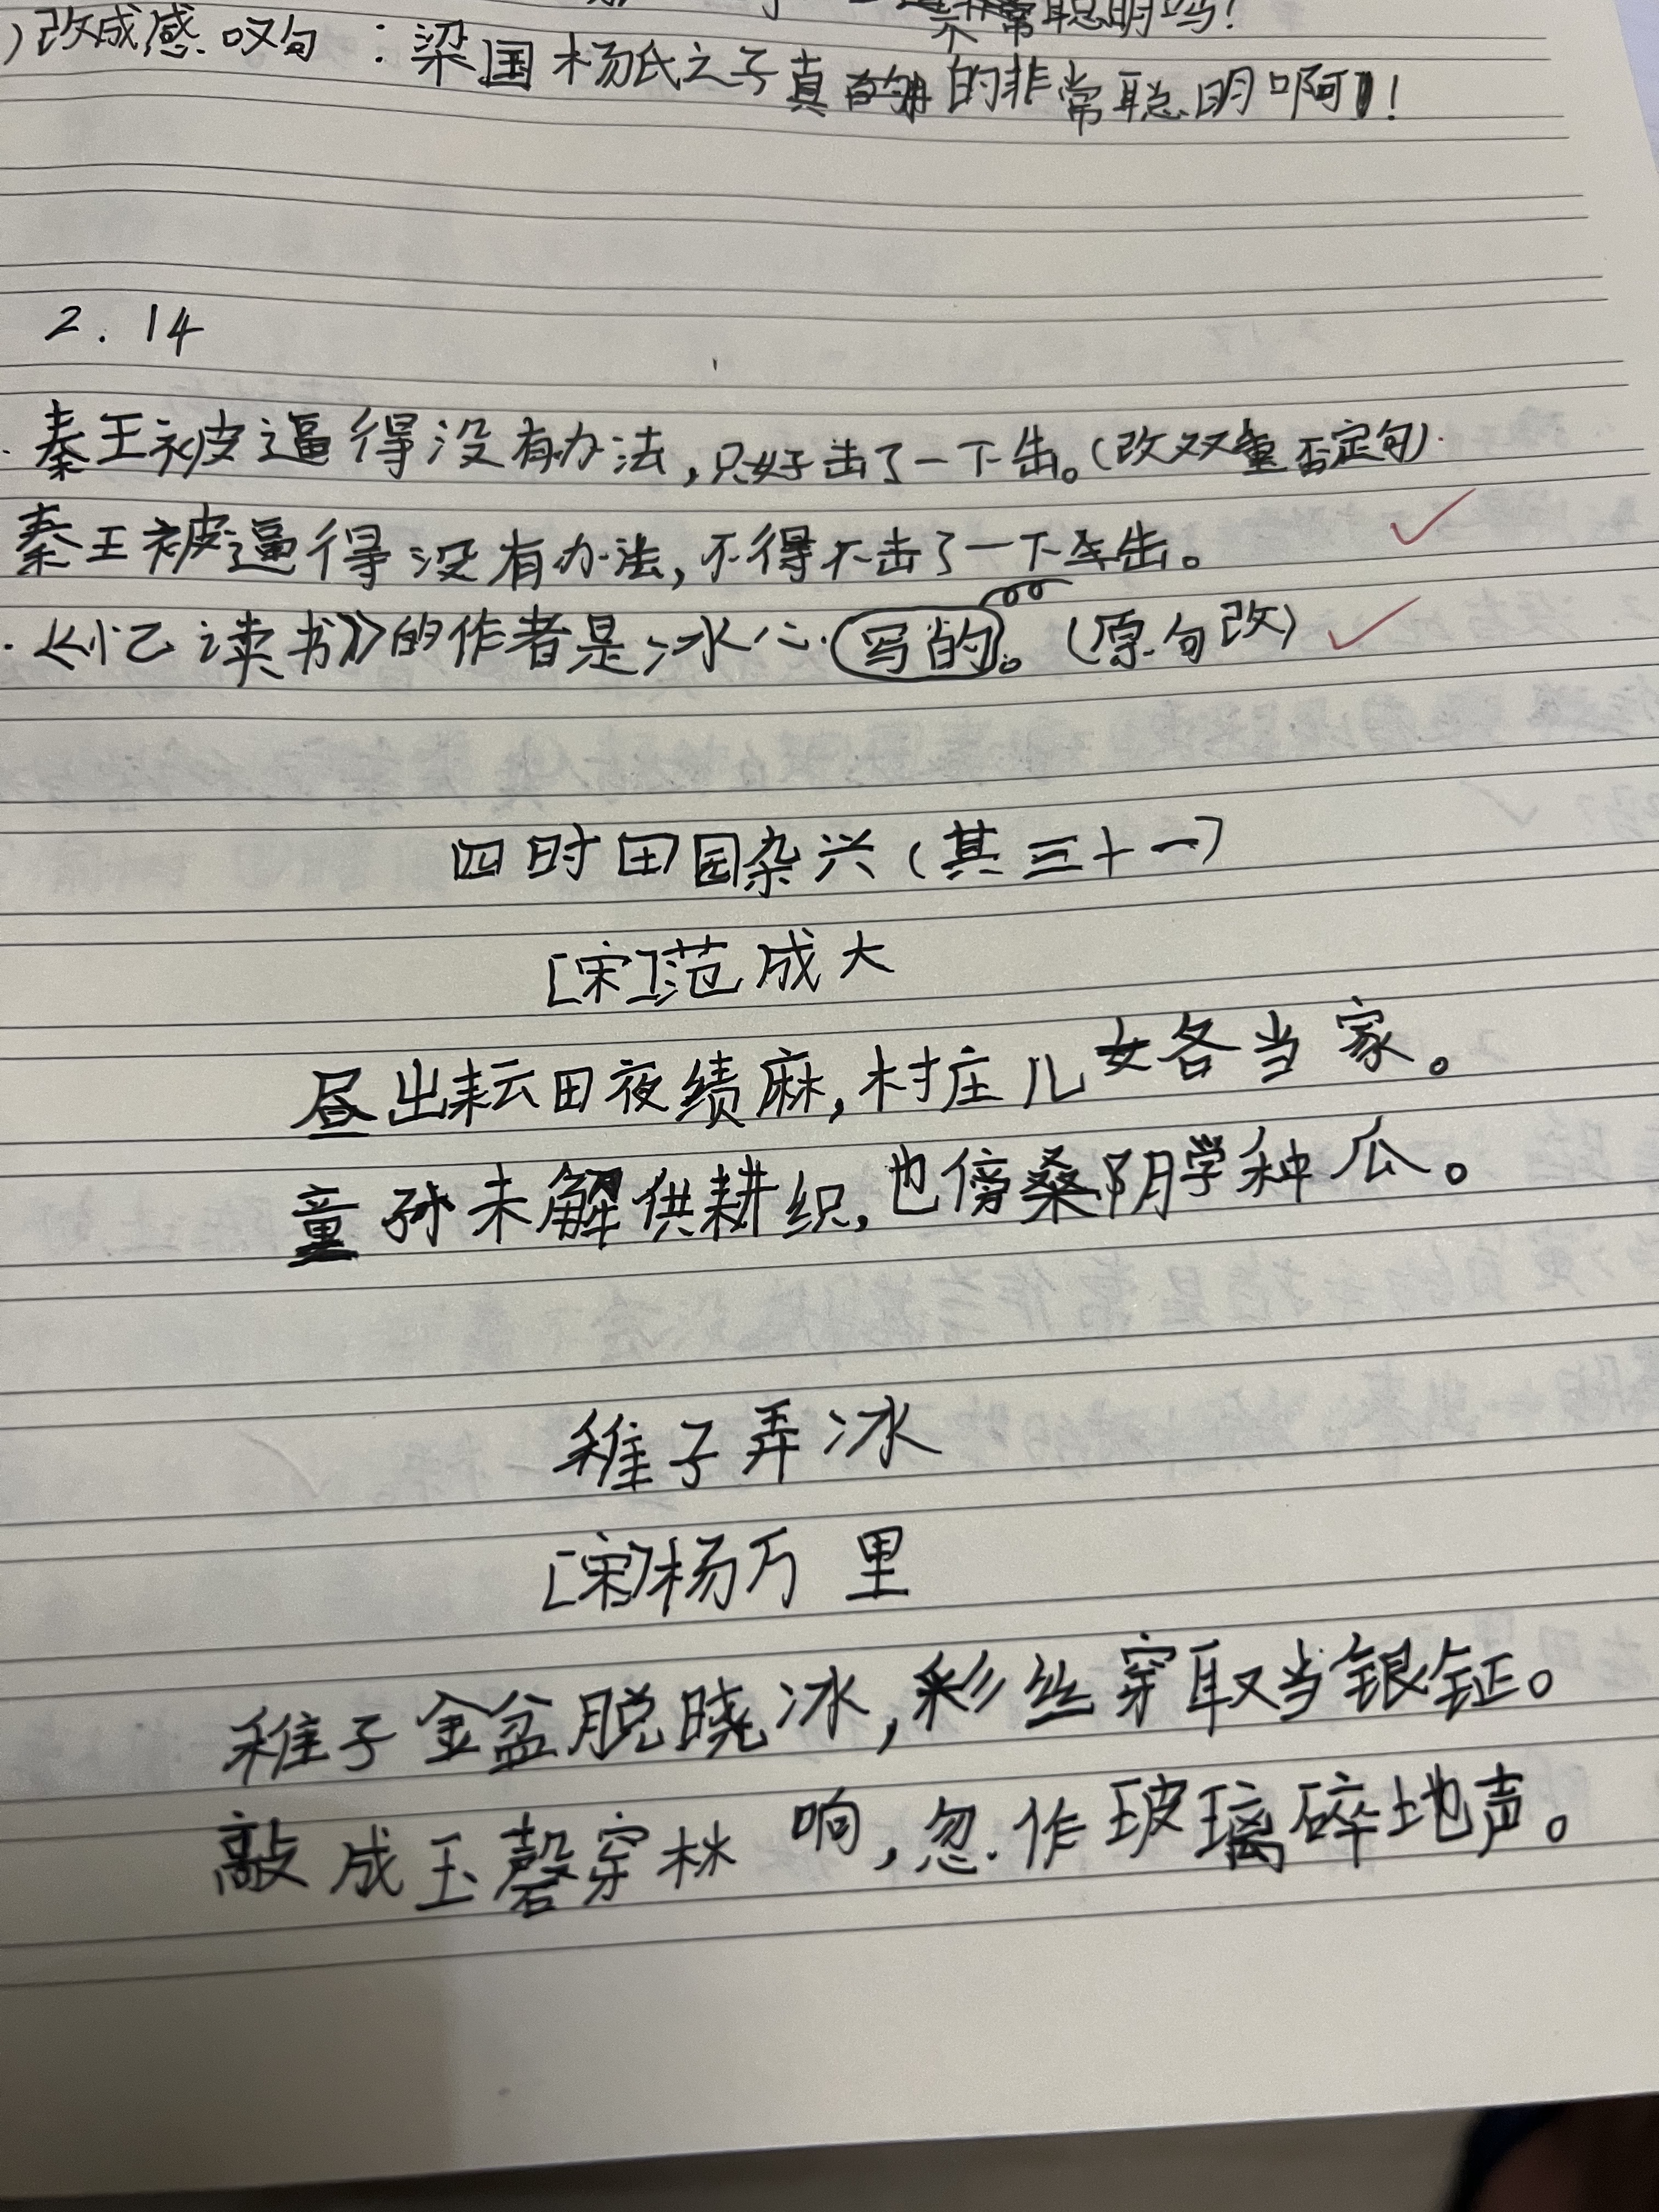 常聪明吗！
）改成感叹句：梁国杨氏之子真的非常聪明啊！
2.14
秦王被逼得没有办法，只好击了一下缶。（改双重否定句）
秦王被逼得没有办法，不得不击了一下缶。
《忆读书》的作者是冰心写的。（原句改）
四时田园杂兴（其三十一）
[宋]范成大
昼出耘田夜绩麻，村庄儿女各当家。
童孙未解供耕织，也傍桑阴学种瓜。
稚子弄冰
[宋]杨万里
稚子金盆脱晓冰，彩丝穿取当银钲。
敲成玉磬穿林响，忽作玻璃碎地声。